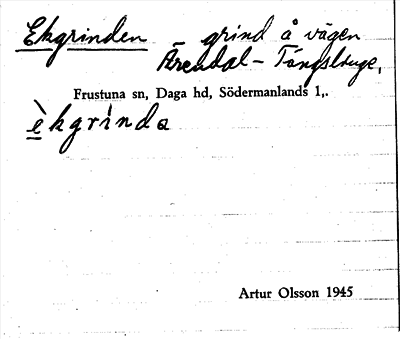 Ekgrinden grind å vägen
Ärendal - Tångstuge,
Frustuna sn, Daga hd, Södermanlands l,.
èkgrinda
Artur Olsson 1945